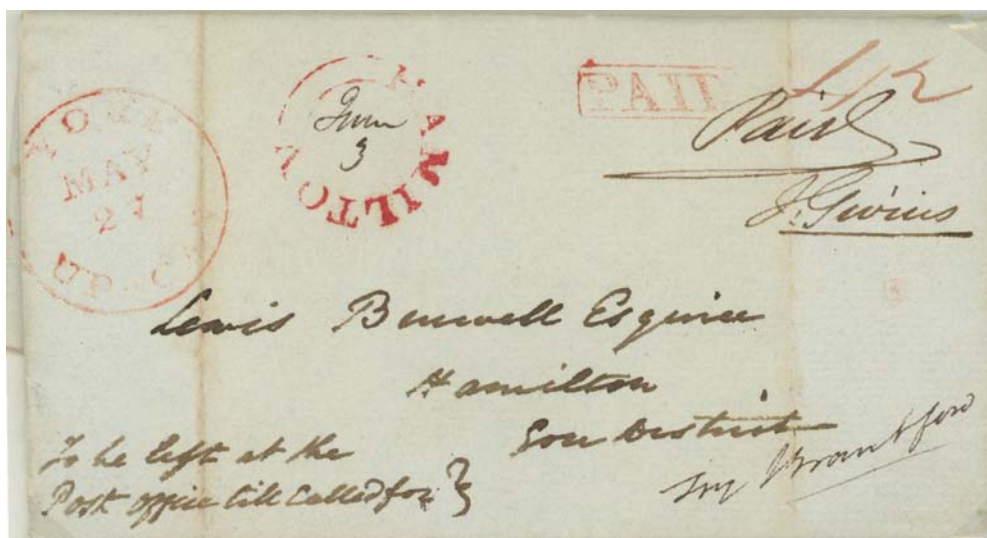 YORK
MAY
27
U.C
HAMILTON
June
3
PAID
4½
Paid
J. Givins
Lewis Burwell Esquire
Hamilton
Gore District
To be left at the
Post office till Called for
Brantford